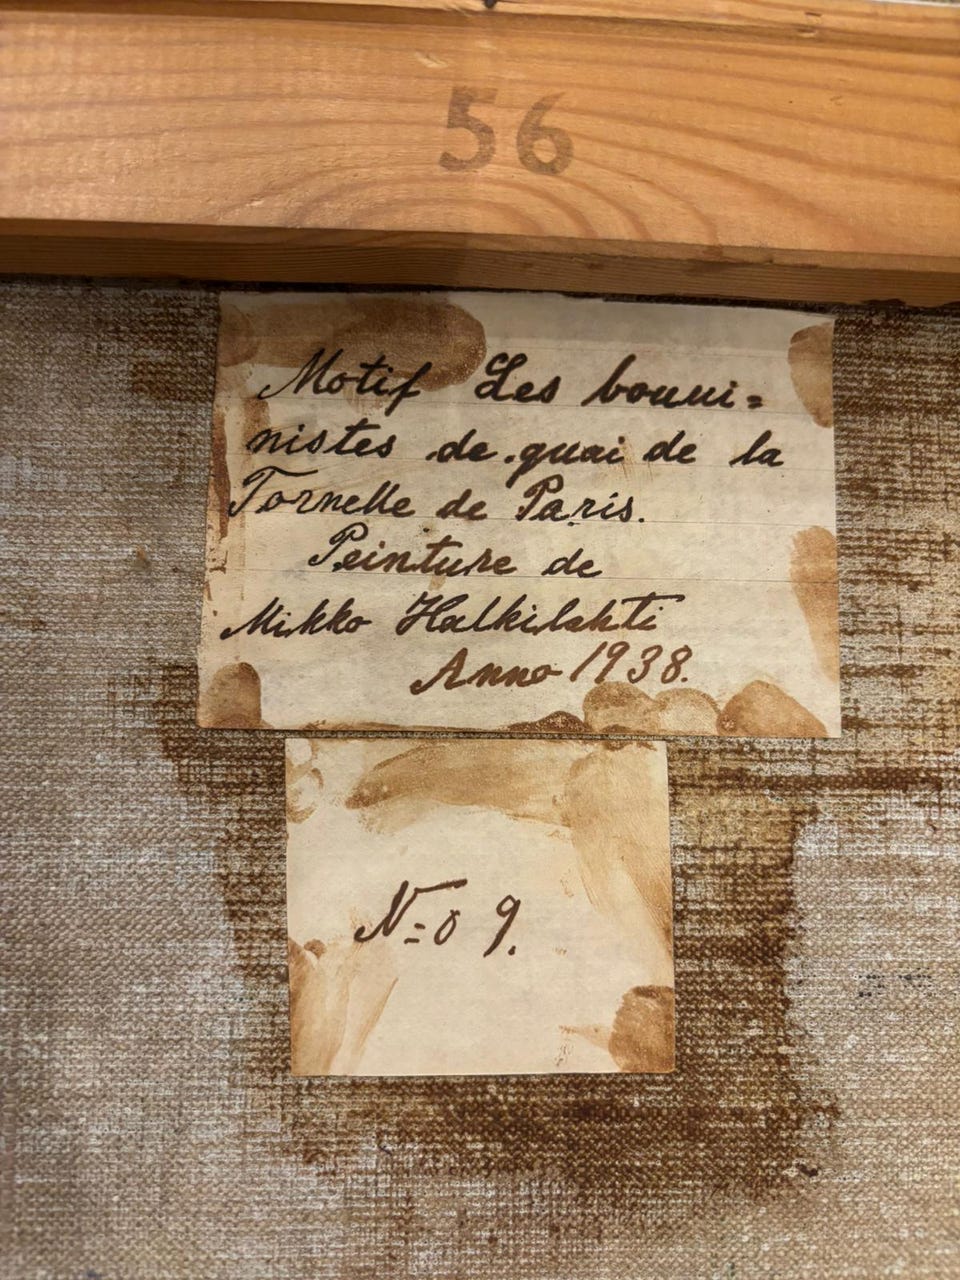 56
Motif Les bouui=
nistes de quai de la
Tornelle de Paris.
Peinture de
Mikko Halkilahti
Anno 1938.
N=o 9.